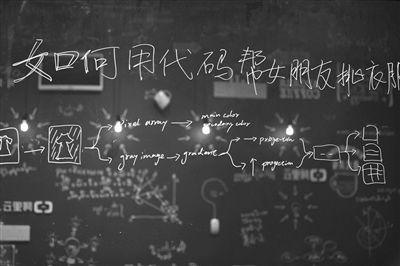 如何用代码帮女朋友挑衣服
pixel array
main color
secondary color
gray image
gradient
projection
projection
云里网